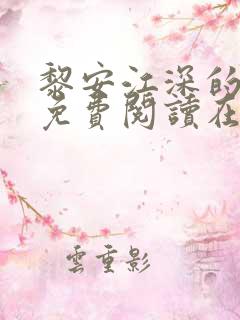 黎安江深的
免費閱讀在
雲重影